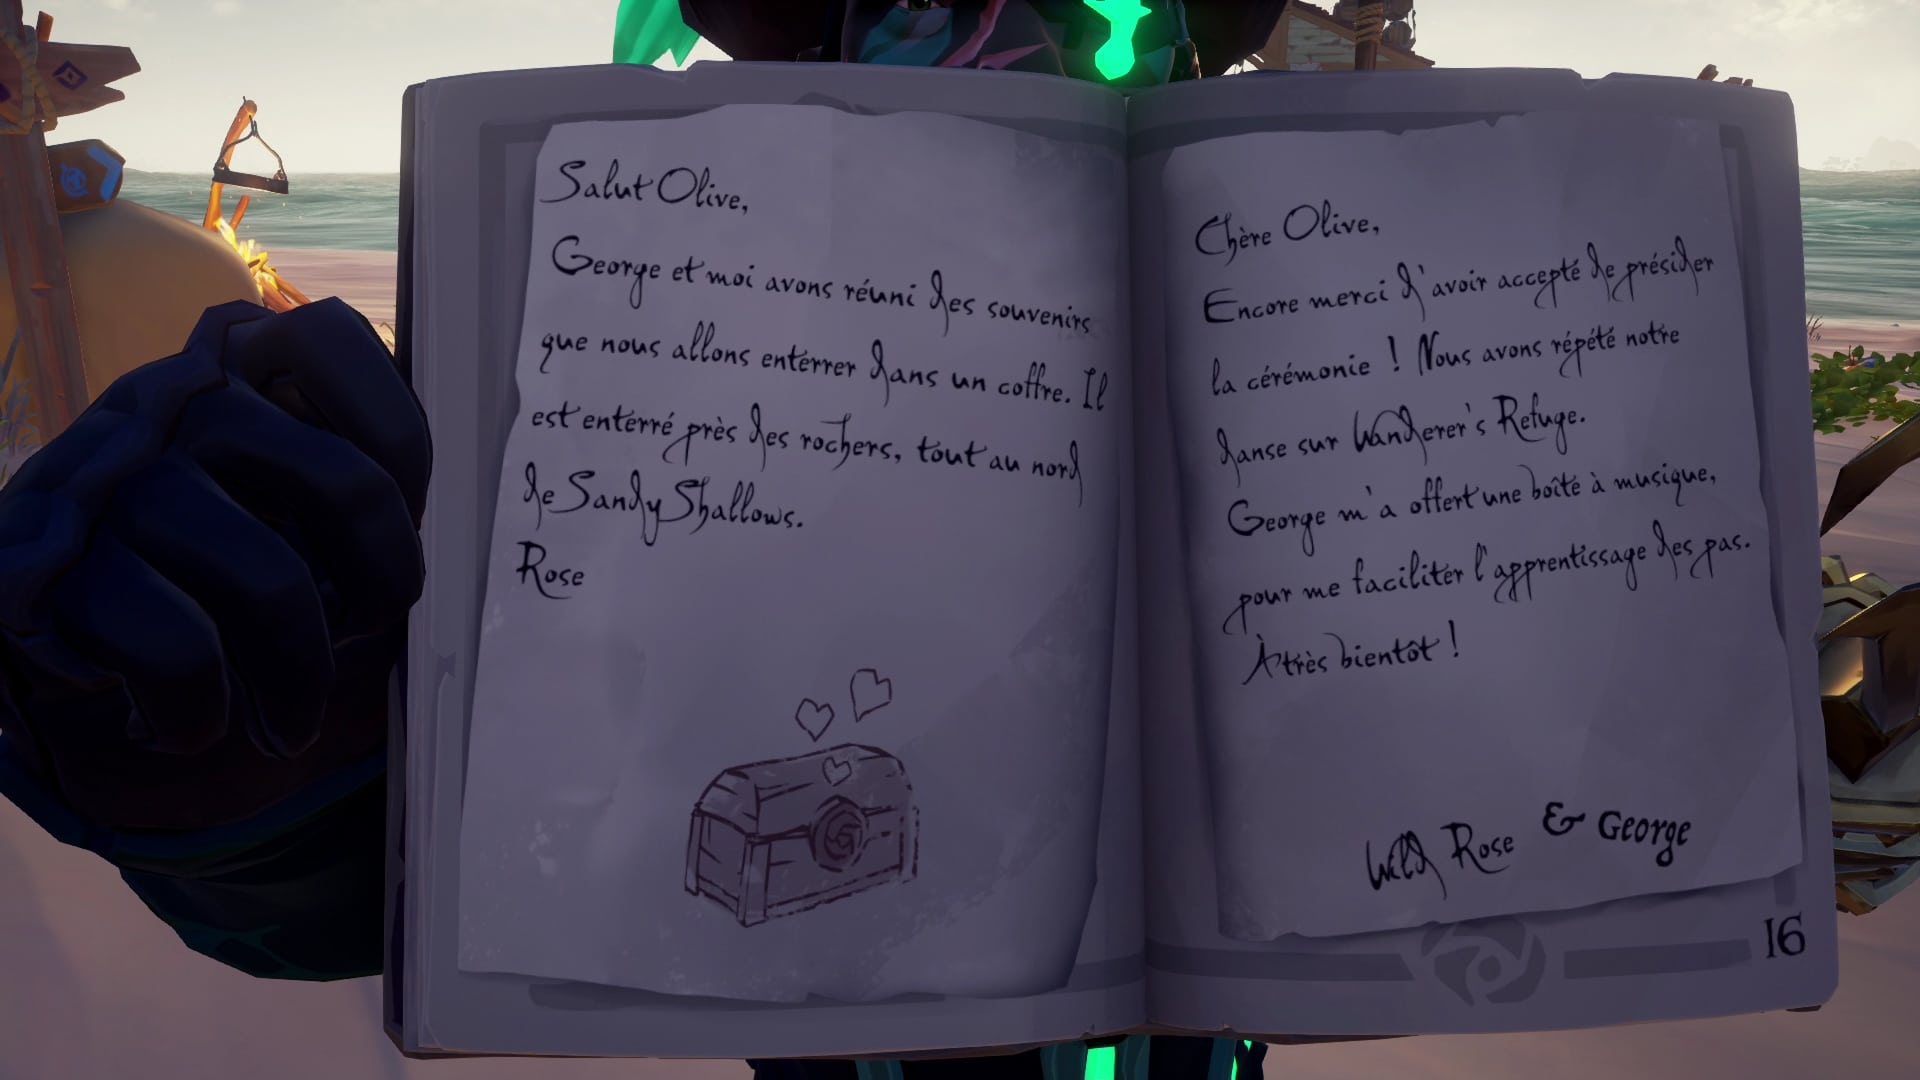 Salut Olive,
George et moi avons réuni des souvenirs
que nous allons enterrer dans un coffre. Il
est enterré près des rochers, tout au nord
de Sandy Shallows.
Rose
Chère Olive,
Encore merci d'avoir accepté de présider
la cérémonie ! Nous avons répété notre
danse sur Wanderer's Refuge.
George m'a offert une boîte à musique,
pour me faciliter l'apprentissage des pas.
À très bientôt !
Wild Rose & George
16